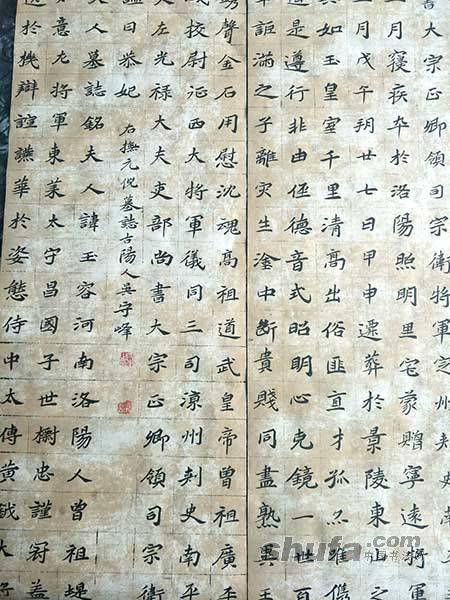 書大宗正卿領司宗衛將軍定州刺史南
月寢疾卒於洛陽照明里宅蒙贈寧遠將
二月戊午朔廿七日甲申遷葬於景陵東山
其如玉皇室千里清高出俗匪直才孤不唯儁
是遵行非由任德音式昭明心克鏡一世百
誑滿之子離灾生淦中斷貴賤同盡熟異
聲金石用慰沈魂高祖道武皇帝曾祖廣平
戎校尉征西大將軍儀同三司涼州刺史南平
左光祿大夫吏部尚書大宗正卿領司宗衛
諡曰恭妃
右撫元倪墓誌古陽人吳守峰
夫人墓誌銘夫人諱玉容河南洛陽人曾祖堤
意左將軍東萊太守昌國子世樹忠謹冠蓋
於機辯誼譙華於姿態侍中太傅黃鉞大將
shufa.com